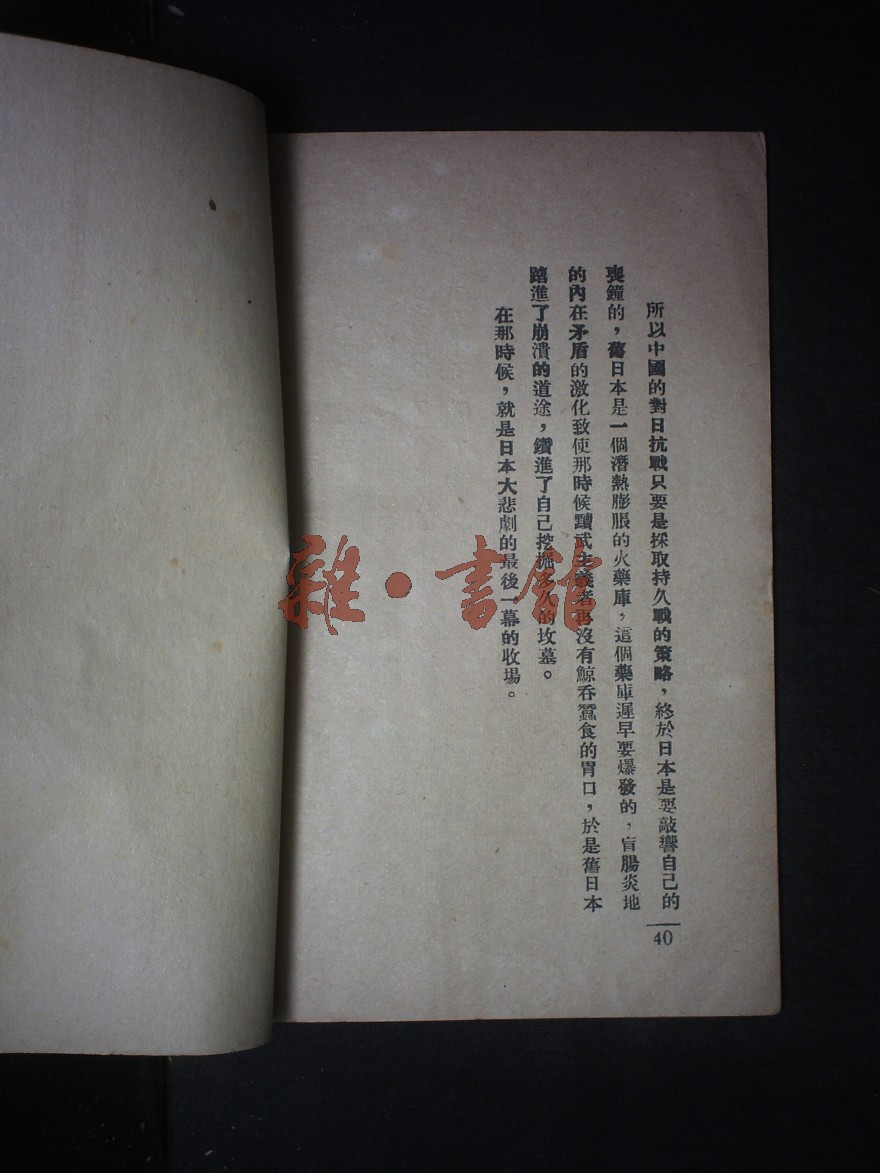 所以中國的對日抗戰只要是採取持久戰的策略，終於日本是要敲響自己的
喪鐘的，舊日本是一個潛熱膨脹的火藥庫，這個藥庫遲早要爆發的，盲腸炎地
的內在矛盾的激化致使那時候黷武主義者再沒有鯨吞蠶食的胃口，於是舊日本
踏進了崩潰的道途，鑽進了自己挖掘久的坟墓。
在那時候，就是日本大悲劇的最後一幕的收場。
40
雜·書館